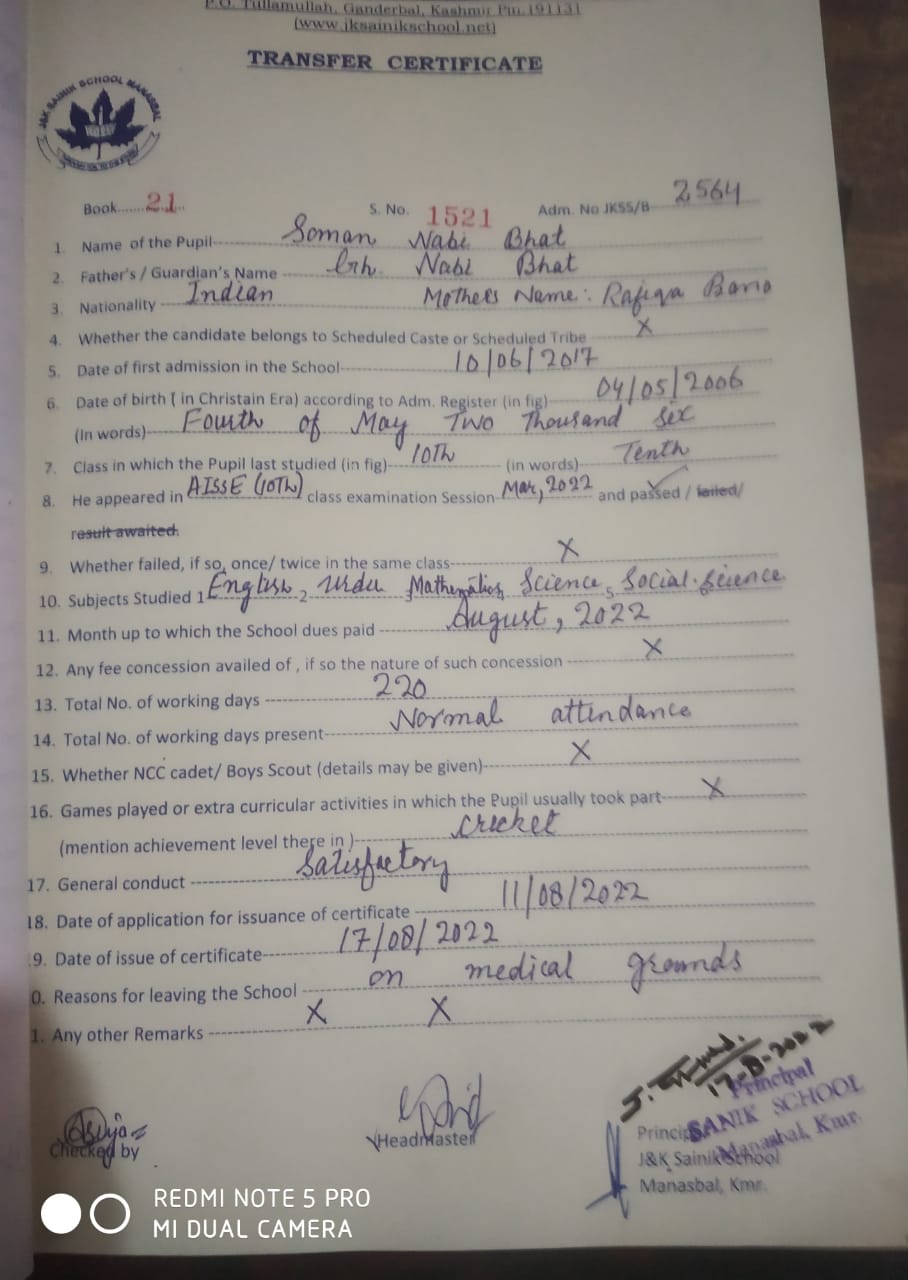 P.O. Tullamullah, Ganderbal, Kashmir Pin. 191131
(www.jksainikschool.net)
TRANSFER CERTIFICATE
J&K SAINIK SCHOOL MANASBAL
Book......21.. S. No. 1521 Adm. No JKSS/B 2564
1. Name of the Pupil Soman Nabi Bhat
2. Father's / Guardian's Name Gh. Nabi Bhat
3. Nationality Indian Mothers Name: Rafiqa Bano
4. Whether the candidate belongs to Scheduled Caste or Scheduled Tribe X
5. Date of first admission in the School 10/06/2017
6. Date of birth ( in Christain Era) according to Adm. Register (in fig) 04/05/2006
(In words) Fourth of May Two Thousand Six
7. Class in which the Pupil last studied (in fig) 10Th (in words) Tenth
8. He appeared in AISSE (10Th) class examination Session Mar, 2022 and passed / failed/
result awaited.
9. Whether failed, if so, once/ twice in the same class X
10. Subjects Studied 1 English, 2 Urdu 3 Mathematics, Science, 5 Social Science
11. Month up to which the School dues paid August, 2022
12. Any fee concession availed of , if so the nature of such concession X
13. Total No. of working days 220
14. Total No. of working days present Normal attendance
15. Whether NCC cadet/ Boys Scout (details may be given) X
16. Games played or extra curricular activities in which the Pupil usually took part X
(mention achievement level there in ) Cricket
17. General conduct Satisfactory
18. Date of application for issuance of certificate 11/08/2022
9. Date of issue of certificate 17/08/2022
0. Reasons for leaving the School on medical grounds
1. Any other Remarks X X
17-8-2022
Principal
SANIK SCHOOL
Manasbal, Kmr.
Checked by
Headmaster
Principal
J&K Sainik School
Manasbal, Kmr.
REDMI NOTE 5 PRO
MI DUAL CAMERA